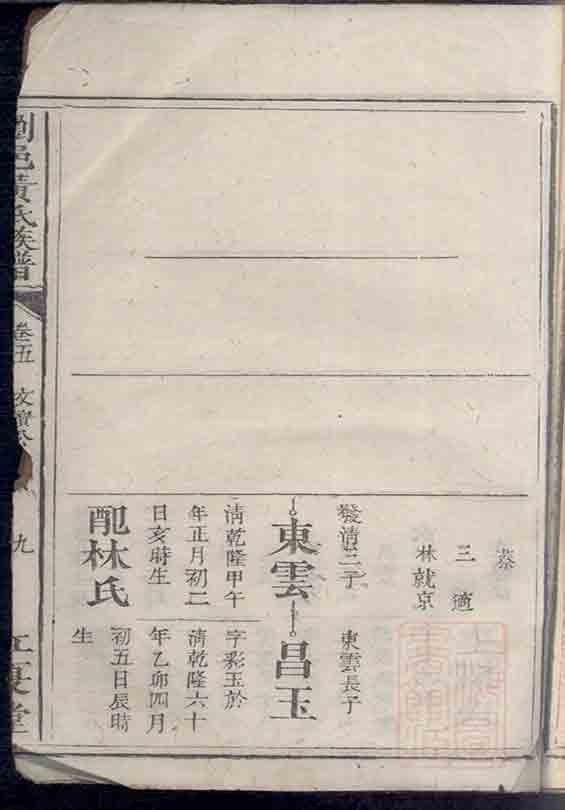 葬
三 適
林就京
發清三子
東雲
清乾隆甲午
年正月初二
日亥時生
配林氏
東雲長子
昌玉
字彩玉於
清乾隆六十
年乙卯四月
初五日辰時
生
劉邑黃氏族譜
卷五
九
江夏堂